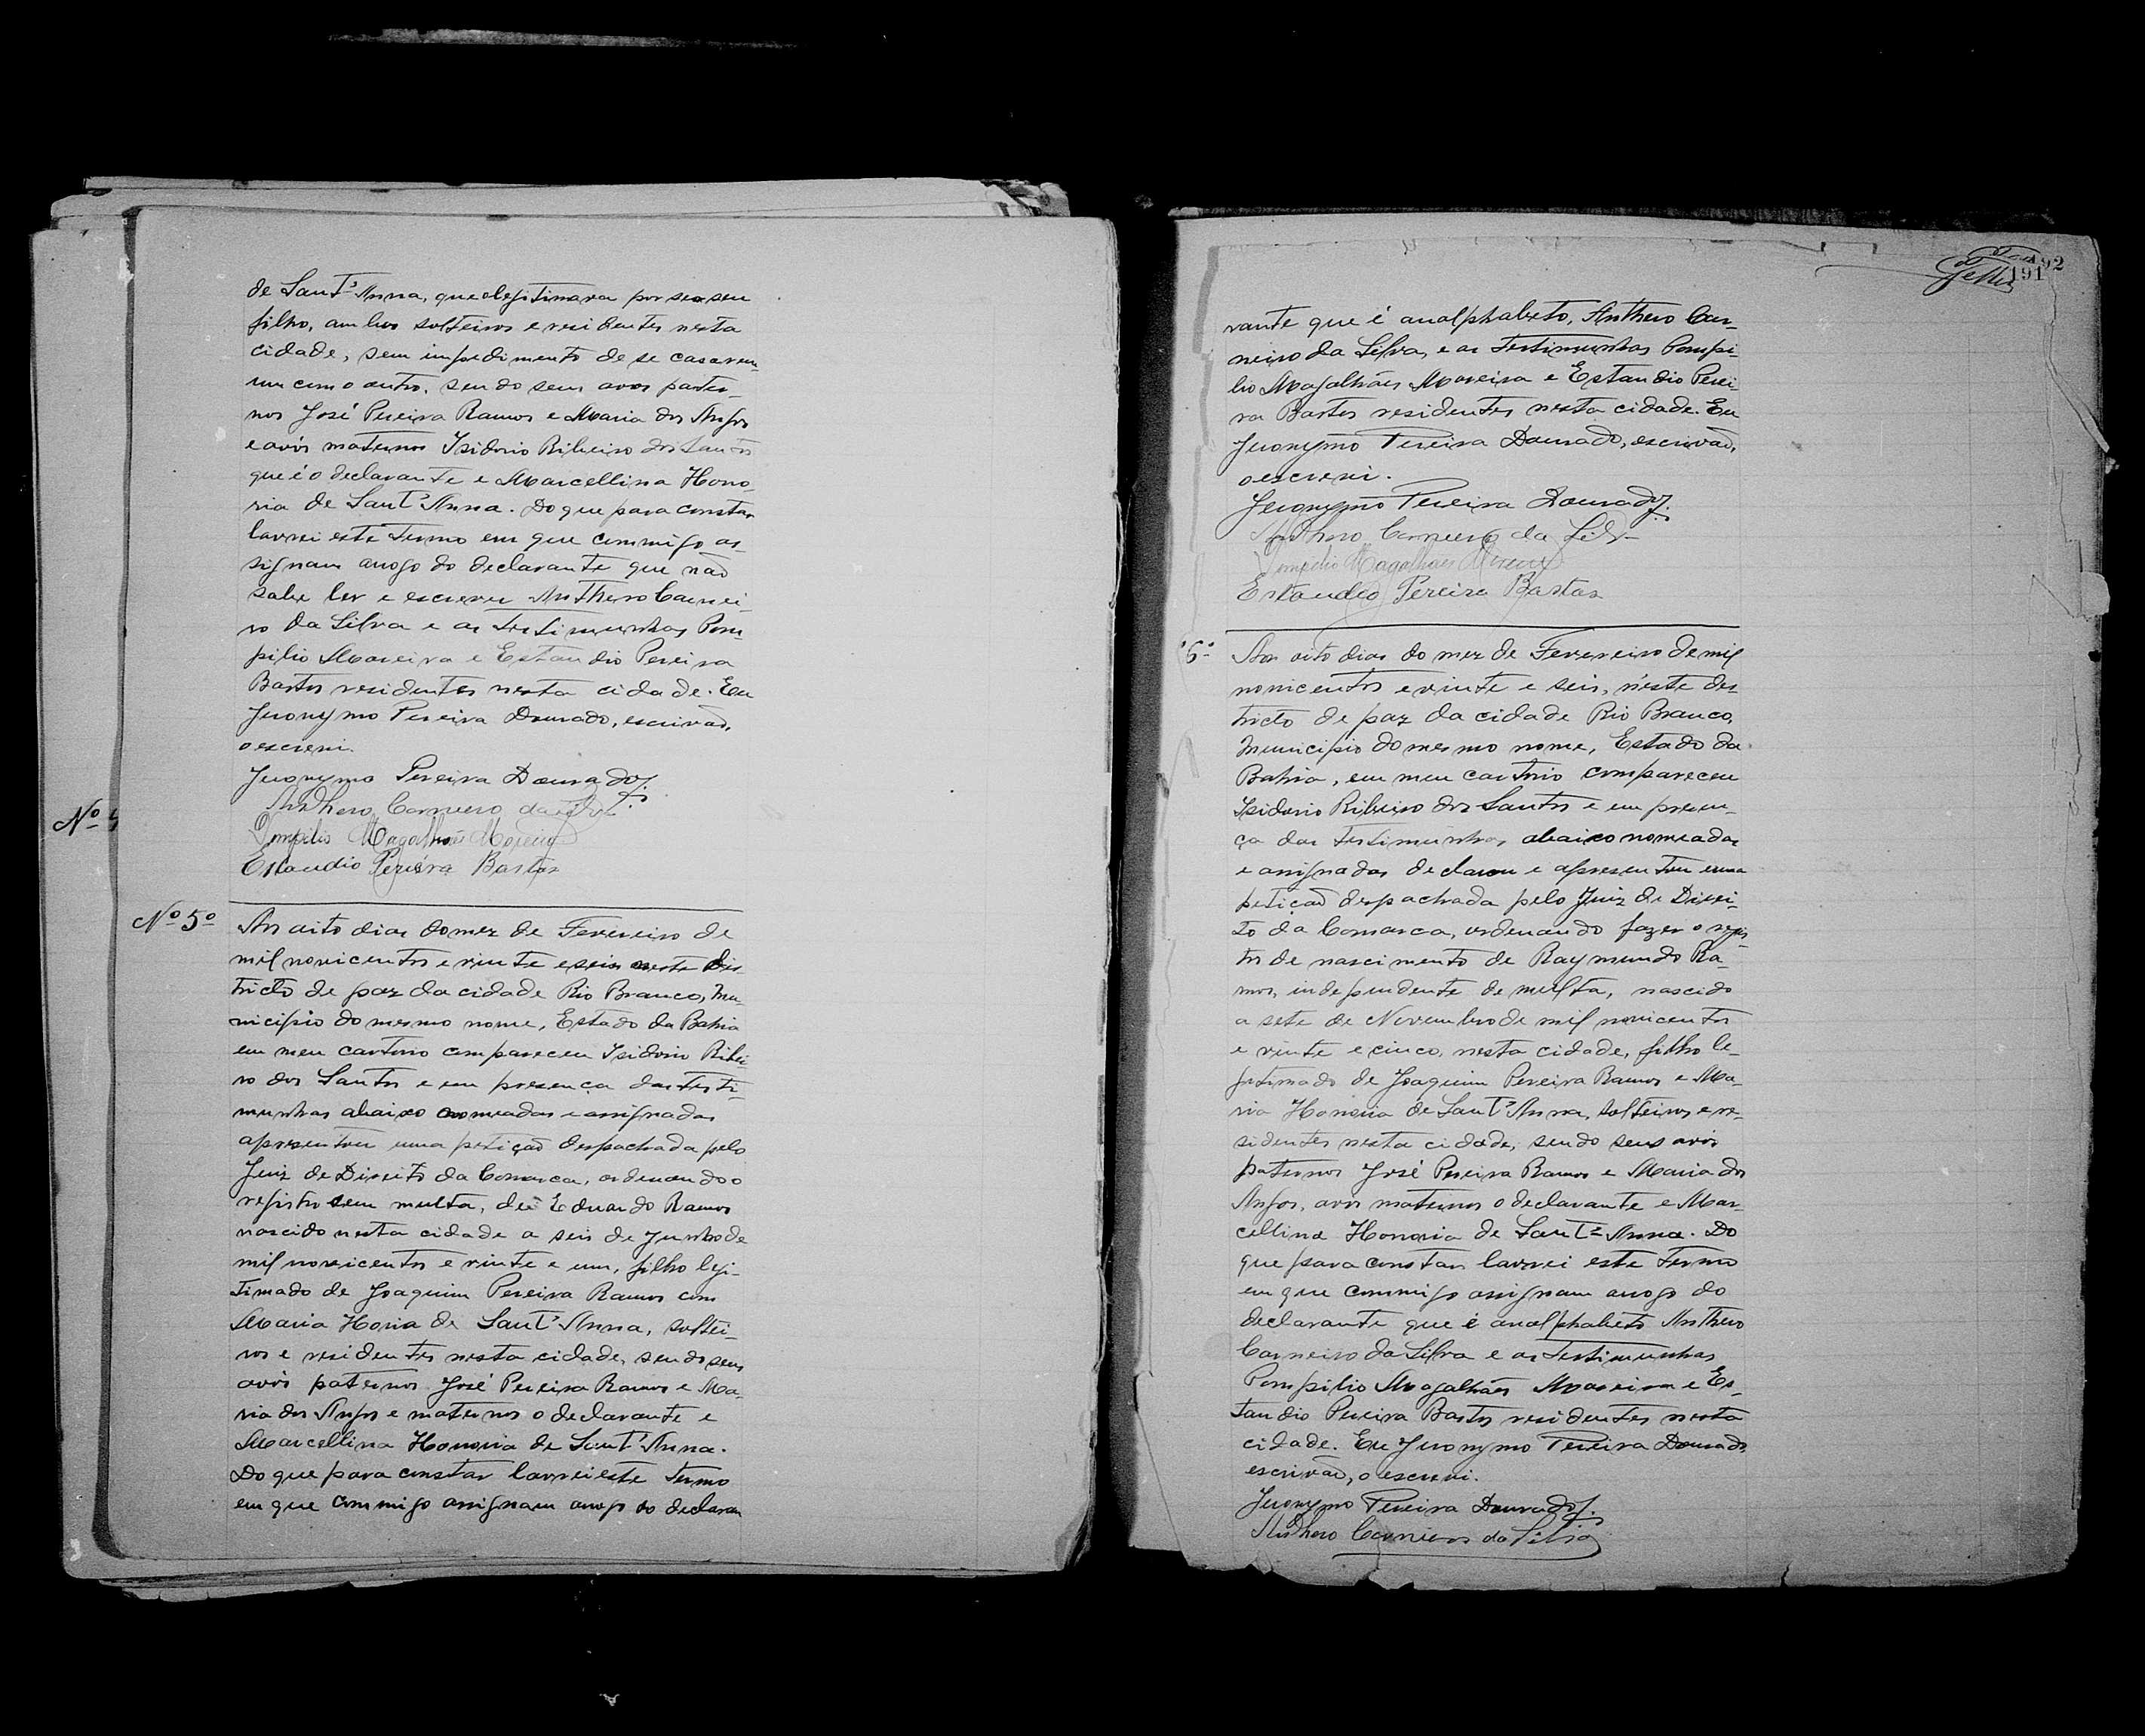 de Sant'Anna, que elegitimaram por ser seu
filho, ambos solteiros e residentes nesta
cidade, sem impedimento de se casarem
um com o outro, sendo seus avos pater-
nos José Pereira Ramos e Maria dos Anjos
e avós maternos Isidorio Ribeiro dos Santos
que é o declarante e Marcellina Hono-
ria de Sant'Anna. Do que para constar
lavrei este termo em que commigo as-
signam arogo do declarante que não
sabe ler e escrever Anthero Carnei-
ro da Silva e as testimunhas Pom
pilio Moreira e Estaudio Pereira
Bastos residentes nesta cidade. Eu
Jeronymo Pereira Dourado, escrivão,
o escrevi.
Jeronymo Pereira Dourado
Anthero Carneiro da
Pompilio Magalhães Moreira
Estaudio Pereira Bastos
Nº
Nº 5º
Aos oito dias do mez de Fevereiro de
mil novicentos e vinte e seis neste dis
tricto de paz da cidade Rio Branco, Mu-
nicipio do mesmo nome, Estado da Bahia
em meu cartorio compareceu Isidorio Ribei
ro dos Santos e em presença das testi-
munhas abaixo nomeadas e assignadas
apresentou uma petição despachada pelo
Juiz de Direito da Comarca, ordenando o
registro sem multa, de Eduardo Ramos
nascido nesta cidade a seis de Junho de
mil novicentos e vinte e um, filho legi-
timado de Joaquim Pereira Ramos com
Maria Honia de Sant'Anna, soltei-
ros e residentes nesta cidade, sendo seus
avós paternos José Pereira Ramos e Ma-
ria dos Anjos e maternos o declarante e
Marcellina Honoria de Sant'Anna.
Do que para constar lavrei este termo
em que commigo assignam arogo do declaran
192
191
rante que é analphabeto, Anthero Car-
neiro da Silva, e as testimunhas Pompi-
lio Magalhães Moreira e Estaudio Perei
ra Bastos residentes nesta cidade. Eu
Jeronymo Pereira Dourado, escrivão,
o escrevi.
Jeronymo Pereira Dourado
Anthero Carneiro da Silva
Pompilio Magalhães Moreira
Estaudio Pereira Bastos
6º
Aos oito dias do mez de Fevereiro de mil
novicentos e vinte e seis, n'este dis
tricto de paz da cidade Rio Branco,
Municipio do mesmo nome, Estado da
Bahia, em meu cartorio compareceu
Isidorio Ribeiro dos Santos e em presen-
ça das testimunhas abaixo nomeadas
e assignadas declarou e apresentou uma
petição despachada pelo Juiz de Direi-
to da Comarca, ordenando fazer o regis-
tro de nascimento de Raymundo Ra-
mos, independente de multa, nascido
a sete de Novembro de mil novicentos
e vinte e cinco, nesta cidade, filho le-
gitimado de Joaquim Pereira Ramos e Ma-
ria Honoria de Sant'Anna, solteiros e re-
sidentes nesta cidade, sendo seus avós
paternos José Pereira Ramos e Maria dos
Anjos, avós maternos o declarante e Mar-
cellina Honoria de Sant'Anna. Do
que para constar lavrei este termo
em que commigo assignam arogo do
declarante que é analphabeto Anthero
Carneiro da Silva e as testimunhas
Pompilio Magalhães Moreira e Es-
taudio Pereira Bastos residentes nesta
cidade. Eu Jeronymo Pereira Dourado
escrivão, o escrevi.
Jeronymo Pereira Dourado
Anthero Carneiro da Silva